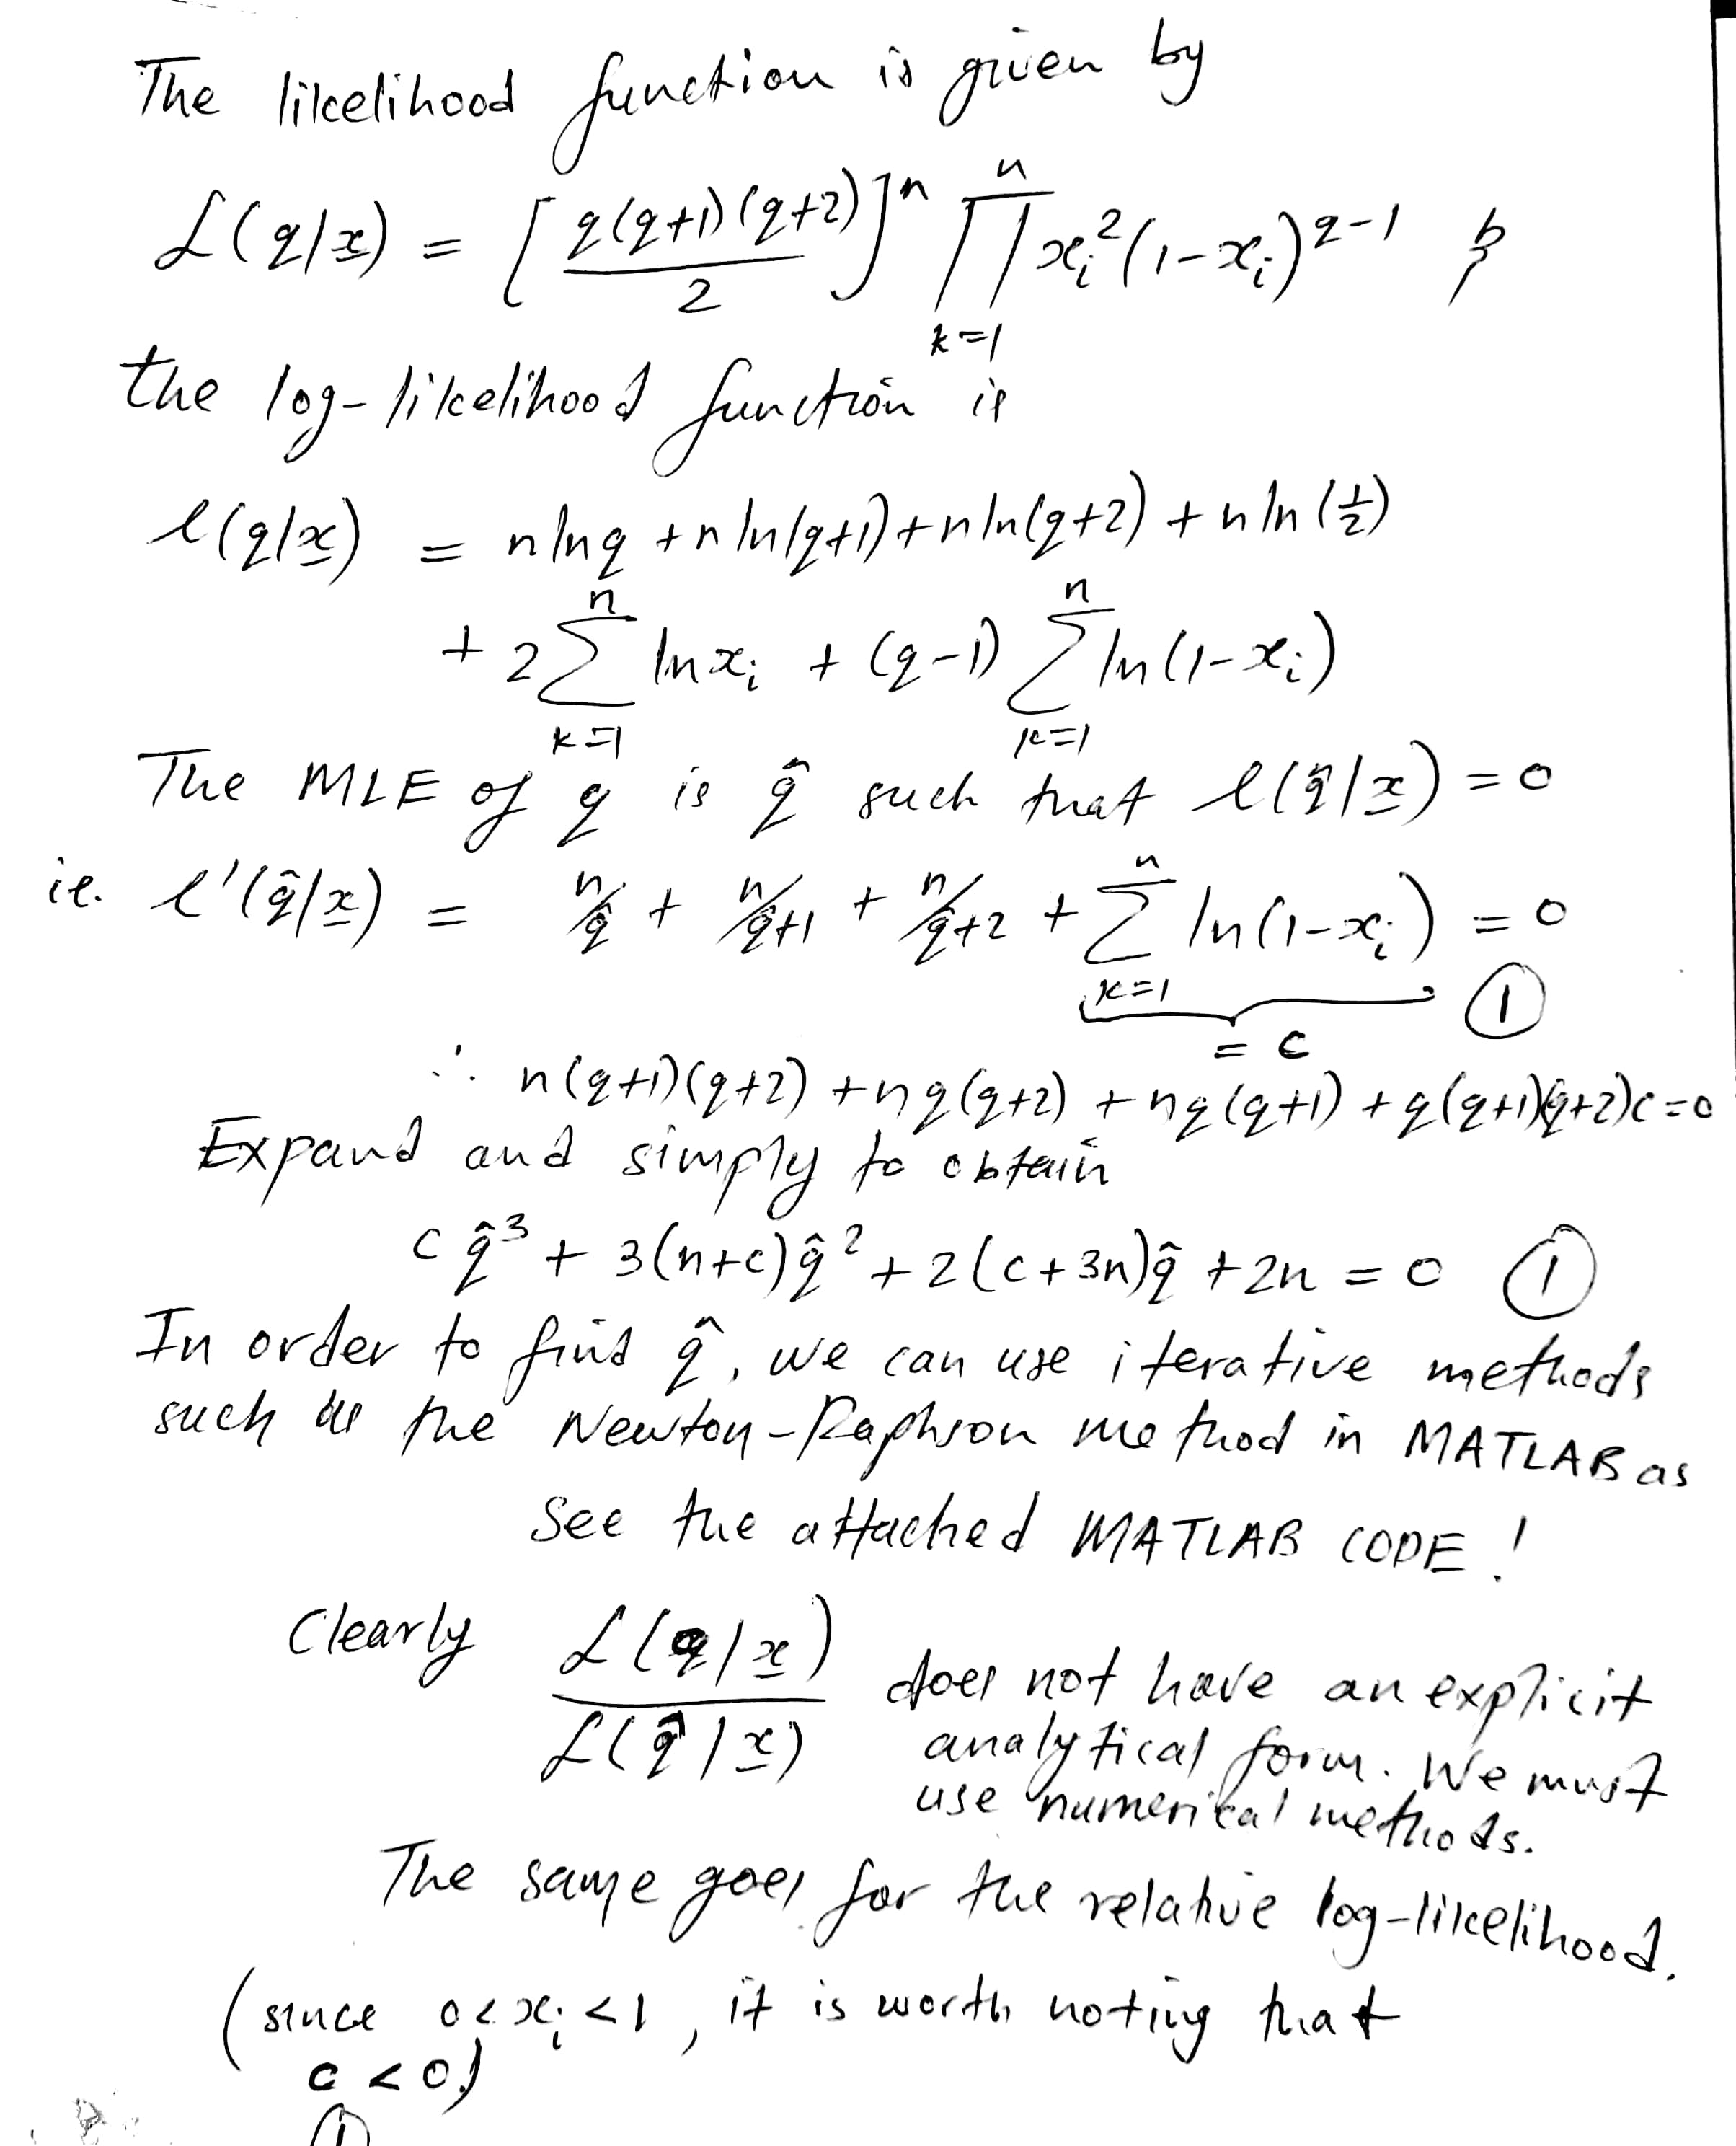 The likelihood function is given by
ℒ(q|x̲) = [q(q+1)(q+2)/2]ⁿ ∏_{k=1}^{n} xᵢ²(1-xᵢ)^{q-1} &
the log-likelihood function is
ℓ(q|x̲) = n ln q + n ln(q+1) + n ln(q+2) + n ln(½)
+ 2 ∑_{k=1}^{n} ln xᵢ + (q-1) ∑_{k=1}^{n} ln(1-xᵢ)
The MLE of q is q̂ such that ℓ(q̂|x̲) = 0
ie. ℓ'(q̂|x̲) = n/q̂ + n/q̂+1 + n/q̂+2 + ∑_{k=1}^{n} ln(1-xᵢ) = 0
= c ①
∴ n(q+1)(q+2) + nq(q+2) + nq(q+1) + q(q+1)(q+2)c = 0
Expand and simply to obtain
c q̂³ + 3(n+c)q̂² + 2(c+3n)q̂ + 2n = 0 ①
In order to find q̂, we can use iterative methods
such as the Newton-Raphson method in MATLAB as
See the attached MATLAB CODE!
Clearly ℒ(q|x̲)/ℒ(q̂|x̲) does not have an explicit
analytical form. We must
use numerical methods.
The same goes for the relative log-likelihood.
(since 0<xᵢ<1, it is worth noting that
c < 0.)
①